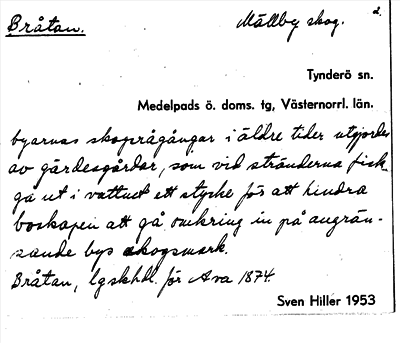 Bråtan. Mällby skog. 2.
Tynderö sn.
Medelpads ö. doms. tg, Västernorrl. län.
byarnas skogrågångar i äldre tider utgjordes
av gärdesgårdar, som vid stränderna fick
gå ut i vattnet ett stycke för att hindra
boskapen att gå omkring in på angrän-
sande bys skogsmark.
Bråtan, lgskhdl. för Ava 1874.
Sven Hiller 1953